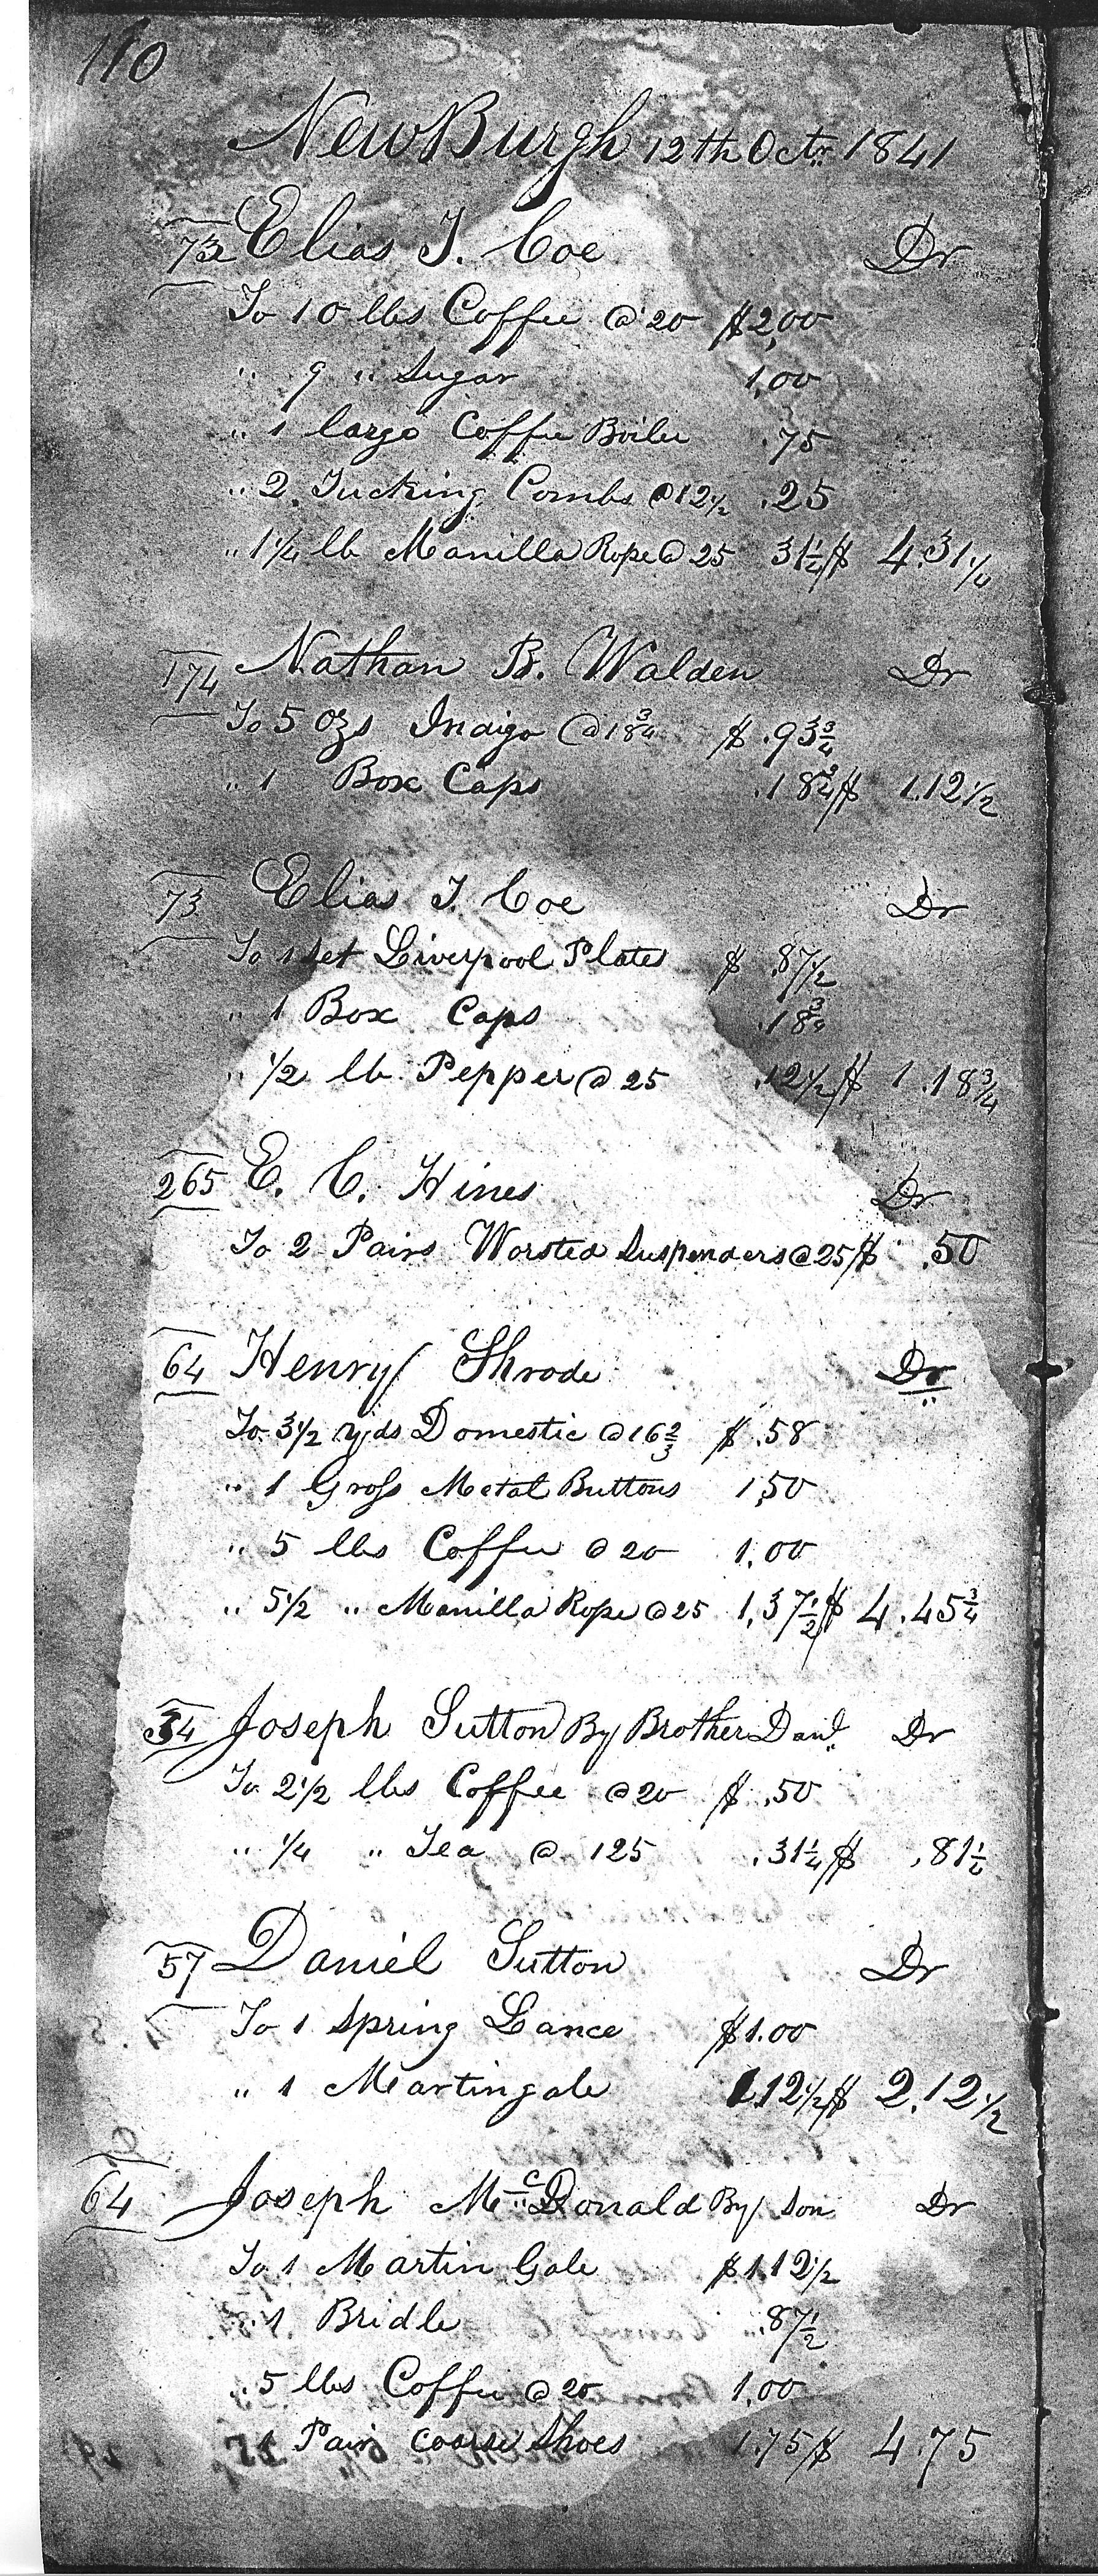 110
NewBurgh 12th Octr. 1841
73 Elias T. Coe Dr
To 10 lbs Coffee @ 20 $2,00
" 9 " Sugar 1,00
" 1 large Coffee Boiler .75
" 2 Tucking Combs @ 12½ .25
" 1¼ lb Manilla Rope @ 25 31¼ $ 4.31¼
174 Nathan B. Walden Dr
To 5 ozs Indigo @ 18¾ $ .93¾
" 1 Box Caps .18¾ $ 1.12½
73 Elias T. Coe Dr
To 1 set Liverpool Plates $ .87½
" 1 Box Caps .18¾
" ½ lb Pepper @ 25 .12½ $ 1.18¾
265 E. C. Hines Dr
To 2 Pairs Worsted Suspenders @ 25 $ .50
64 Henry Shrode Dr
To 3½ yds Domestic @ 16⅔ $ .58
" 1 Gross Metal Buttons 1,50
" 5 lbs Coffee @ 20 1,00
" 5½ " Manilla Rope @ 25 1,37½ $ 4.45¾
34 Joseph Sutton By Brother Danl. Dr
To 2½ lbs Coffee @ 20 $ .50
" ¼ " Tea @ 125 .31¼ $ .81¼
57 Daniel Sutton Dr
To 1 Spring Lance $1.00
" 1 Martingale 1.12½ $ 2.12½
64 Joseph McDonald By Son Dr
To 1 Martin Gale $1.12½
" 1 Bridle .87½
" 5 lbs Coffee @ 20 1,00
1 Pair Coarse Shoes 1.75 $ 4.75